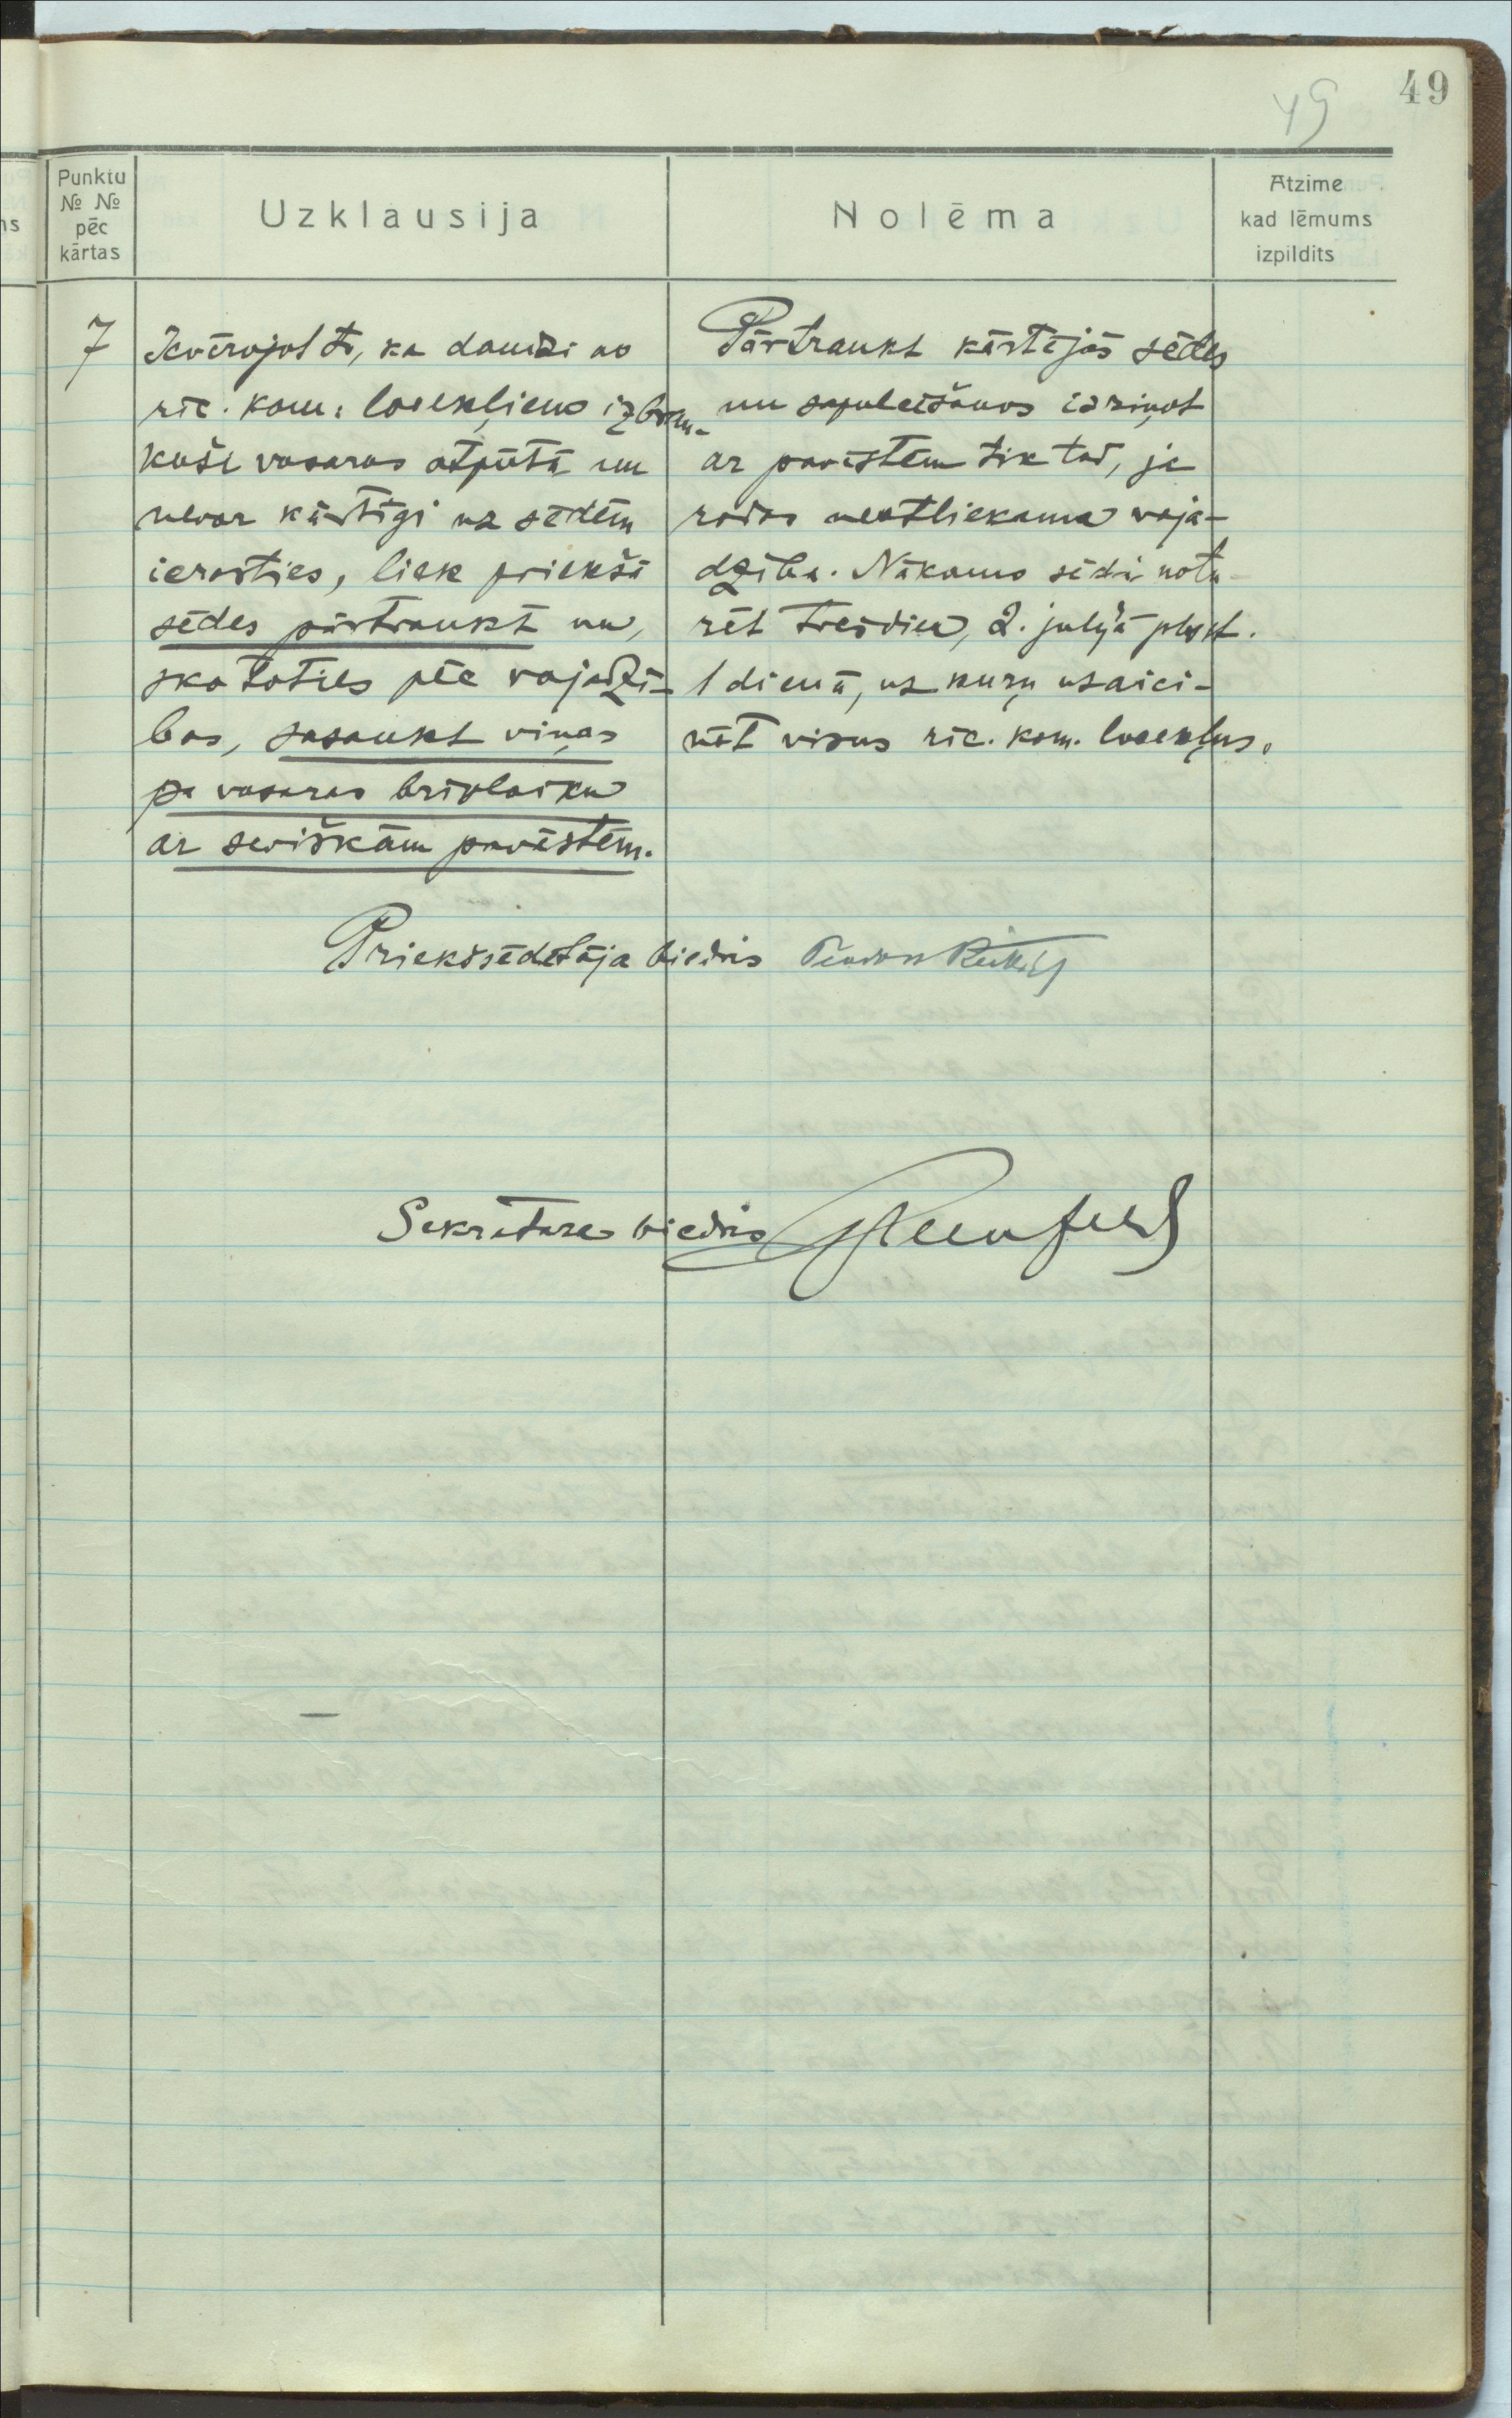 49
49
Punktu
№ №
pēc
kārtas
Uzklausija
Nolēma
Atzime
kad lēmums
izpildits
7
Ievērojot to, ka daudzi no
ric. kom. locekļiem izbrau-
kuši vasaras atpūtā un
nevar kārtīgi uz sēdēm
ierasties, liek priekšā
sēdes pārtraukt un,
skatoties pēc vajadzī-
bas, sasaukt viņas
pa vasaras brīvlaiku
ar sevišķām pavēstēm.
Pārtraukt kārtējās sēdes
un sapulcēšanos izziņot
ar pavēstēm tik tad, ja
rodas neatliekama vaja-
dzība. Nākamo sēdi notu-
rēt trešdien, 2. julijā plkst.
1 dienā, uz kuru uzaici-
nāt visus ric. kom. locekļus.
Priekšsēdētāja biedris
Sekretāra biedris